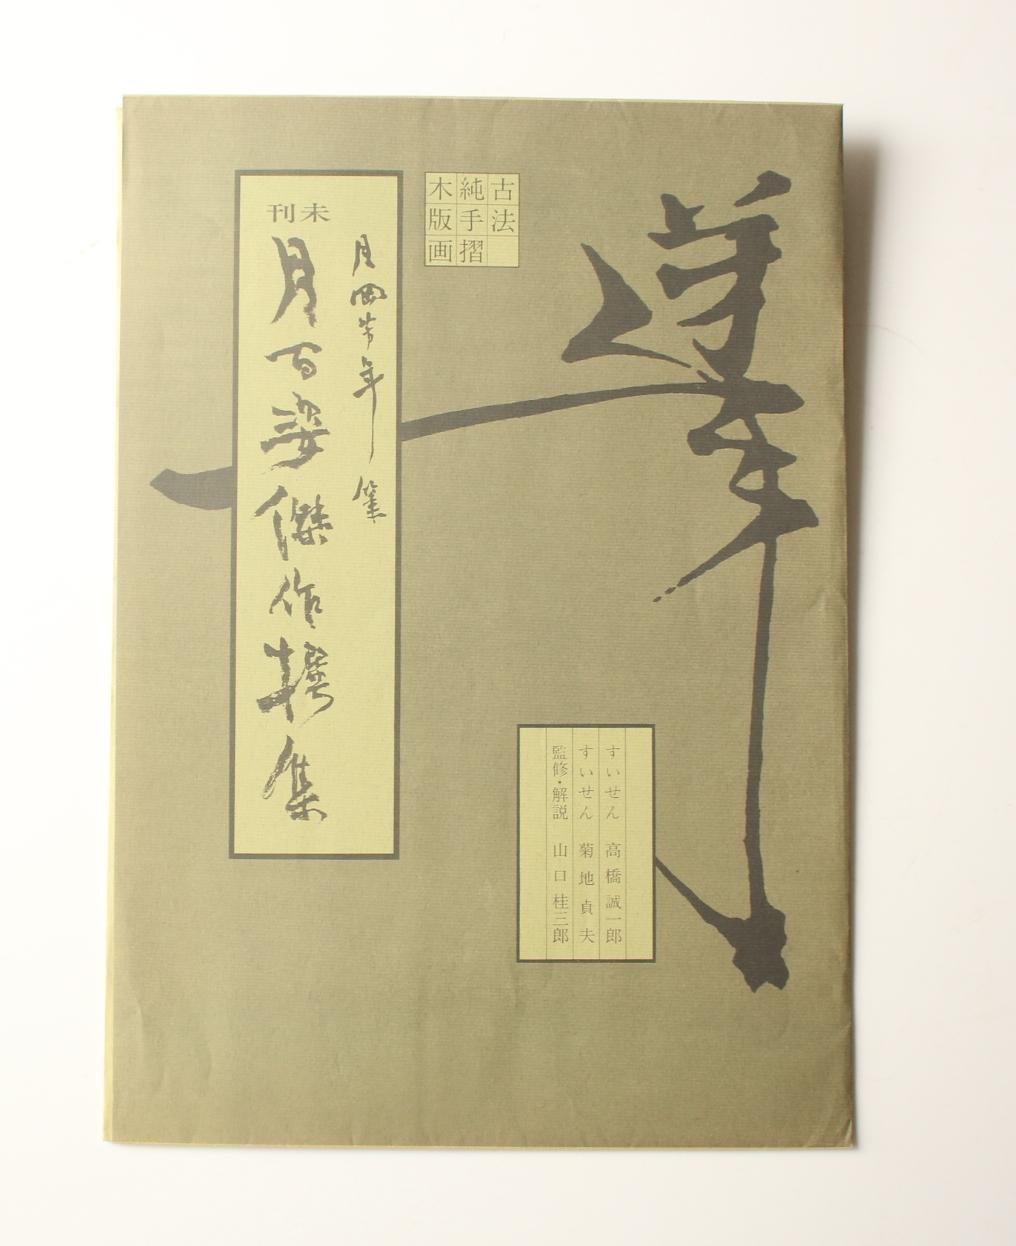 古法
純手摺
木版画
未刊
月岡芳年筆
月百姿傑作撰集
すいせん 高橋誠一郎
すいせん 菊地貞夫
監修・解説 山口桂三郎